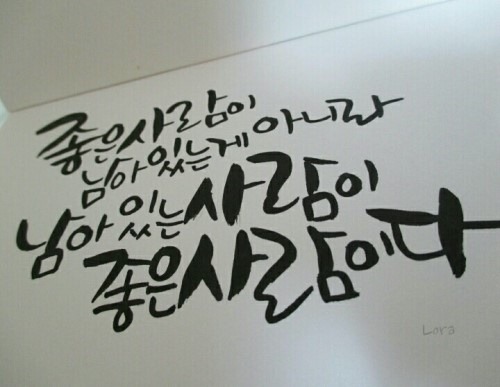 좋은사람이
남아있는게 아니라
남아 있는사람이
좋은사람이다
Lora